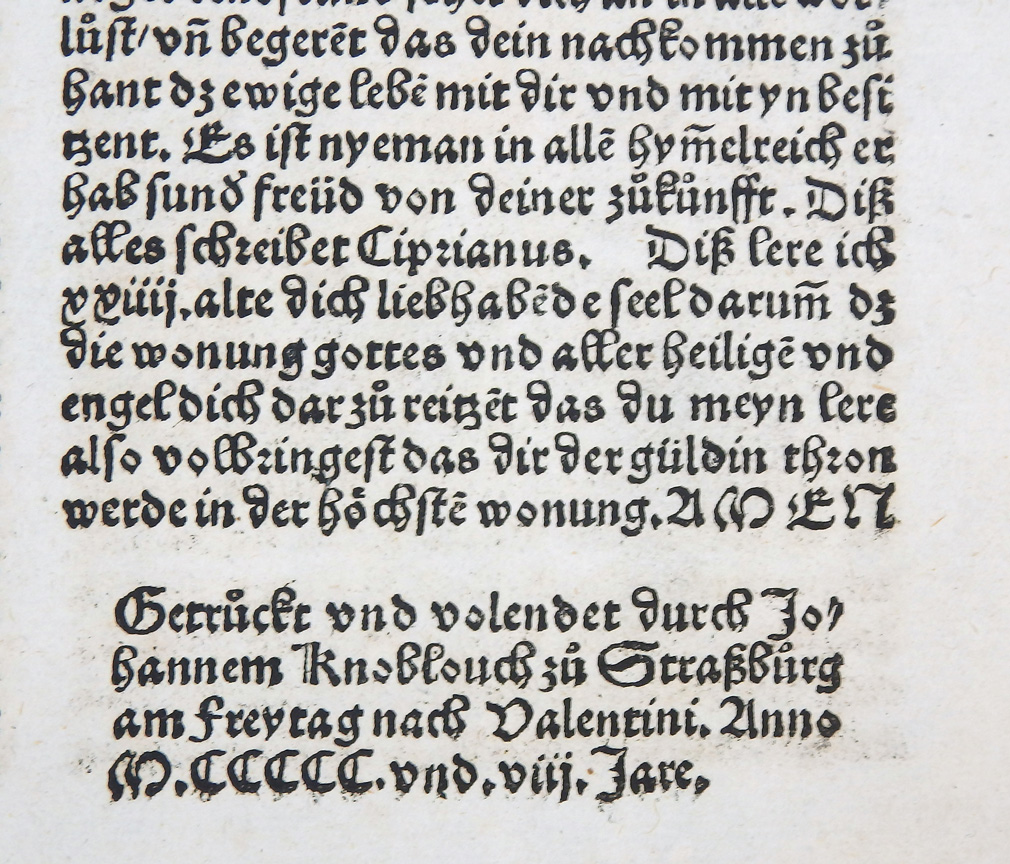 lůst/ vn̄ begerēt das dein nachkommen zů
hant dz ewige lebē mit dir vnd mit yn besi
tzent. Es ist nyeman in allē hym̄elreich er
hab sund̛ freüd von deiner zůkůnfft. Diß
alles schreibet Ciprianus. Diß lere ich
xxiiij. alte dich liebhabēde seel darum̄ dz
die wonung gottes vnd aller heiligē vnd
engel dich darzů reitzēt das du meyn lere
also volbringest das dir der güldin thron
werde in der hoͤchstē wonung. AMEN
Getrůckt vnd volendet durch Jo⸗
hannem Knoblouch zů Straßbůrg
am Freytag nach Valentini. Anno
M.CCCCC. vnd. viij. Jare.